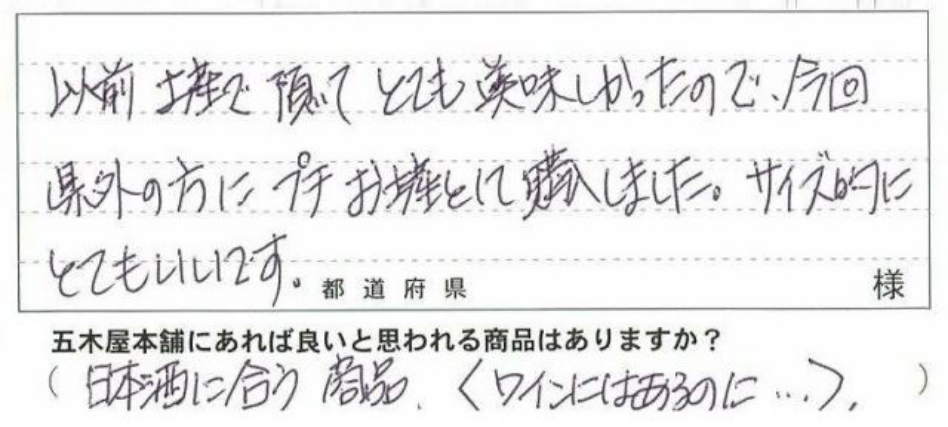 以前土産で頂いてとても美味しかったので、今回
県外の方にプチお土産として購入しました。サイズ的に
とてもいいです。
都道府県 様
五木屋本舗にあれば良いと思われる商品はありますか?
( 日本酒に合う商品.〈ワインにはあるのに…〉. )